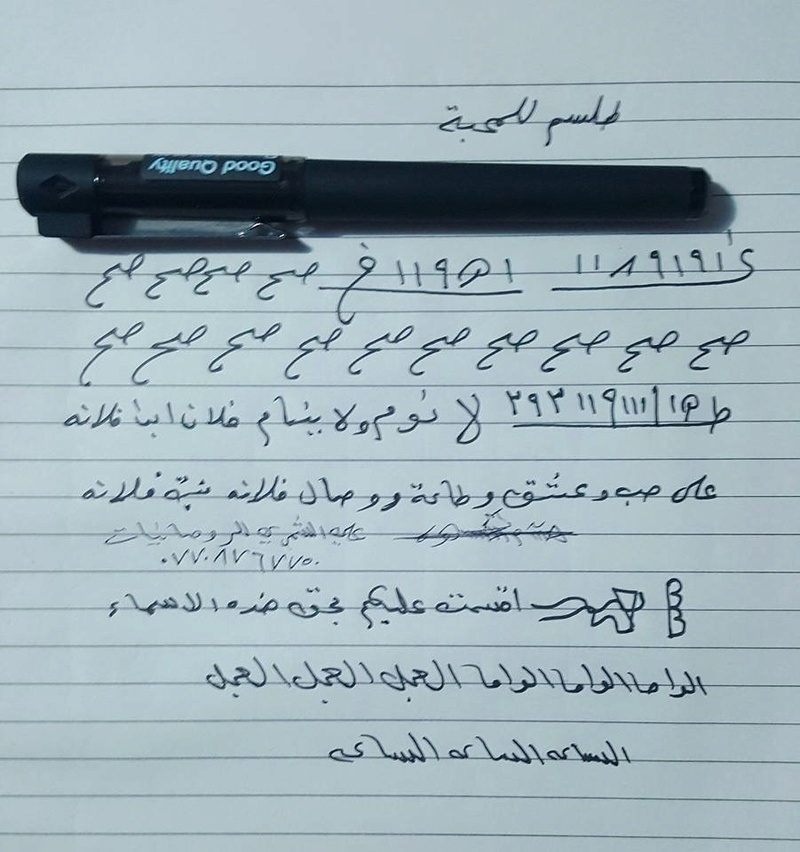 طلسم للمحبة
Good Quality
١١٨٩١٩١ ١ ١١٩ صح صح صح صح
صح صح صح صح صح صح صح صح صح صح
ط ٢٩٣١١٩١١١ لا نوم ولا ينام فلان ابن فلانه
على حب وعشق وطاعة ووصال فلانه بنت فلانه
علي الشمري الروحانيات
٠٧٧٠٨٧٦٧٧٥٠
اقسمت عليكم بحق هذه الاسماء
الواحا الواحا الواحا العجل العجل العجل
الساعه الساعه الساعه